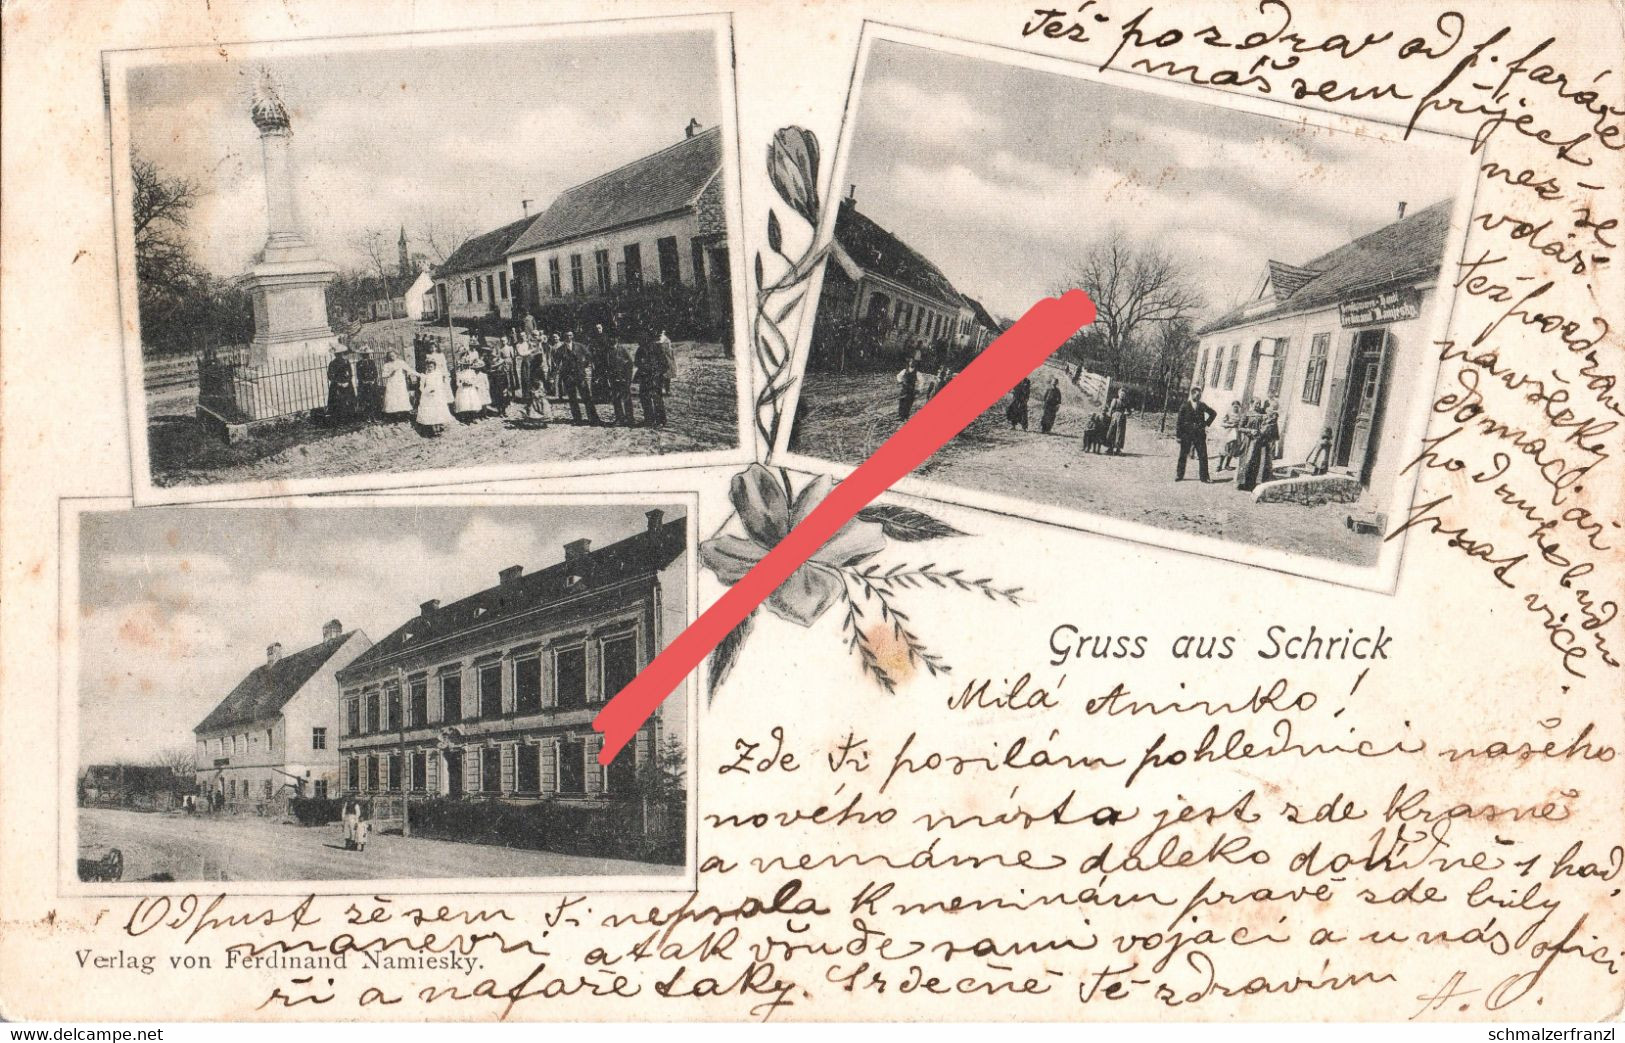 Též pozdrav od f. faráře
máš sem přiject
než se
vdáš.
Též pozdrav
na všecky
domací až
po druhe budu
psat vice.
Gruss aus Schrick
Milá Aninko!
Zde Ti posilám pohlednici našeho
nového místa jest zde krasně
a nemáme daleko do Vídně 1 hod,
Odpust žě sem Ti nepsala k meninám pravě zde byly
manevri a tak všude sami vojaci a u nás ofici
ři a na fařě taky. Srdečně Tě zdravím
A. O.
Verlag von Ferdinand Namiesky.
schmalzerfranzl